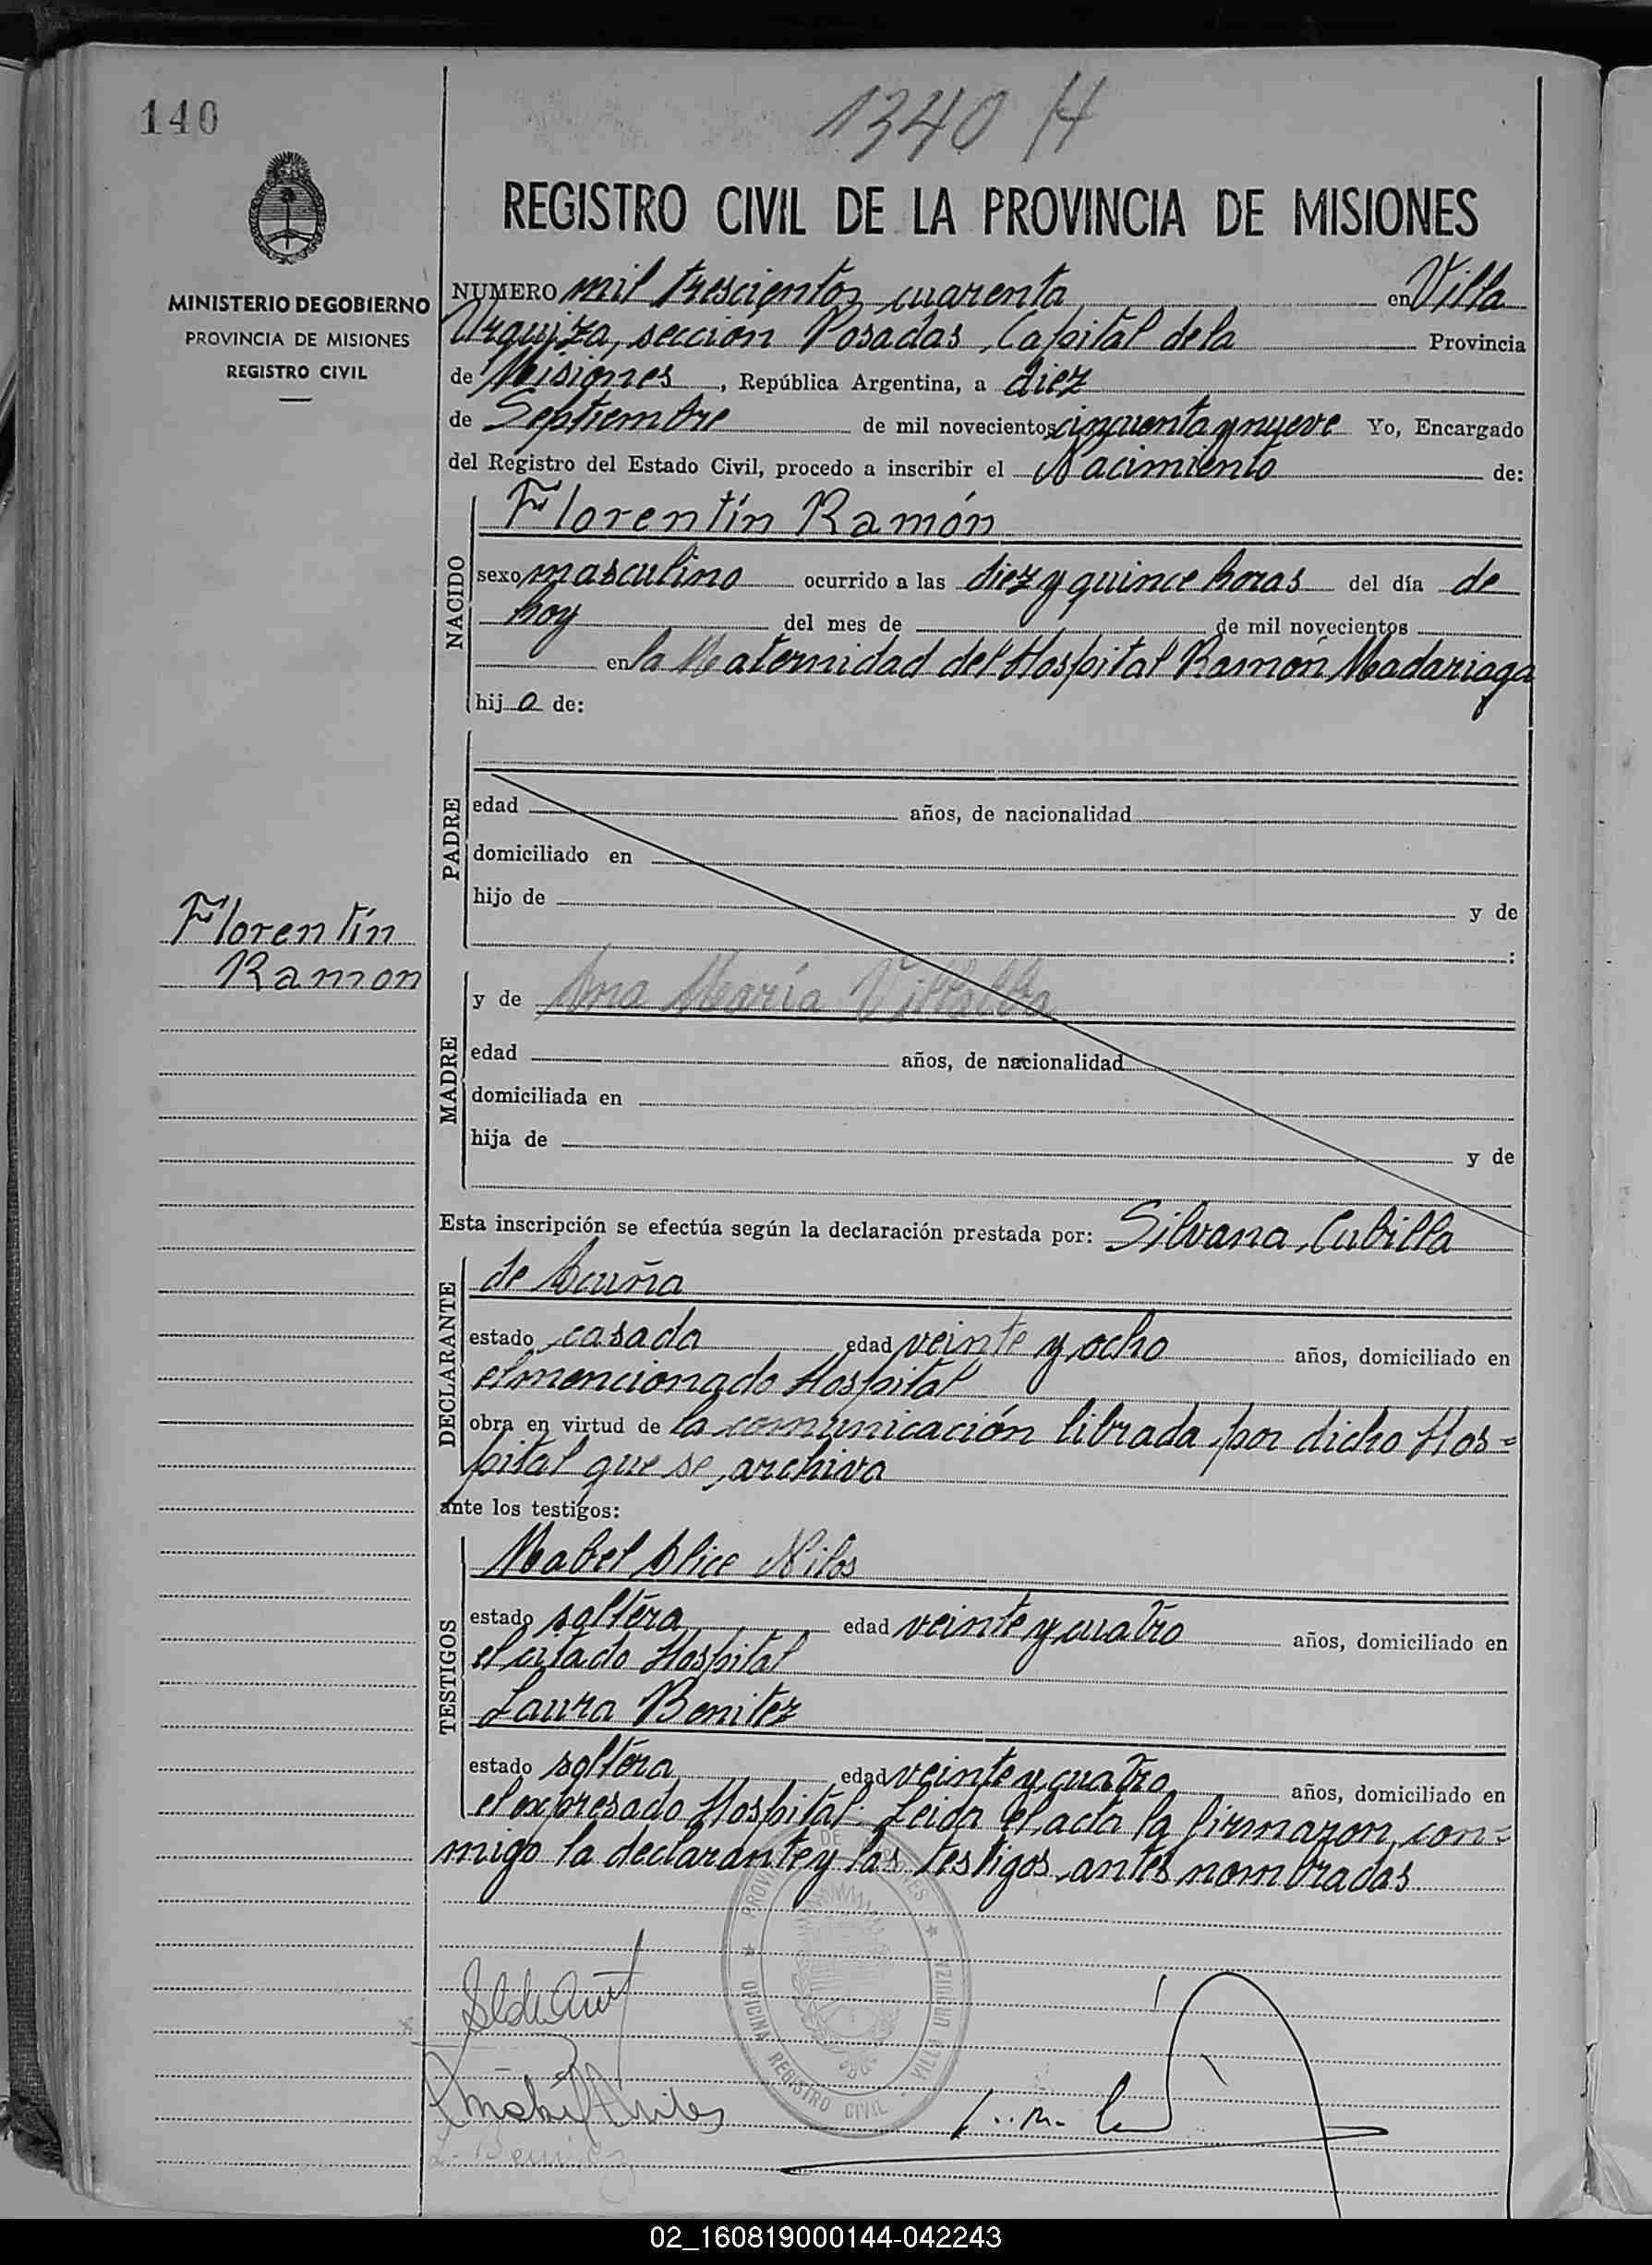 140
1340 H
REGISTRO CIVIL DE LA PROVINCIA DE MISIONES
MINISTERIO DE GOBIERNO
PROVINCIA DE MISIONES
REGISTRO CIVIL
NUMERO mil trescientos cuarenta en Villa
Urquiza, sección Posadas, Capital de la Provincia
de Misiones, República Argentina, a diez
de Septiembre de mil novecientos cincuenta y nueve Yo, Encargado
del Registro del Estado Civil, procedo a inscribir el Nacimiento de:
NACIDO
Florentín Ramón
sexo masculino ocurrido a las diez y quince horas del día de
hoy del mes de de mil novecientos
en la Maternidad del Hospital Ramón Madariaga
hijo de:
PADRE
edad años, de nacionalidad
domiciliado en
hijo de y de
:
Florentín
Ramon
MADRE
y de Ana María Villalba
edad años, de nacionalidad
domiciliada en
hija de y de
Esta inscripción se efectúa según la declaración prestada por: Silvana Cubilla
DECLARANTE
de Acuña
estado casada edad veinte y ocho años, domiciliado en
el mencionado Hospital
obra en virtud de la comunicación librada por dicho Hos=
pital que se archiva
ante los testigos:
TESTIGOS
Mabel Alice Nilos
estado soltera edad veinte y cuatro años, domiciliado en
el citado Hospital
Laura Benitez
estado soltera edad veinte y cuatro años, domiciliado en
el expresado Hospital. Leida el acta la firmaron con=
migo la declarante y las testigos antes nombradas
PROVINCIA DE MISIONES
OFICINA REGISTRO CIVIL VILLA URQUIZA
L. Benitez
02_160819000144-042243